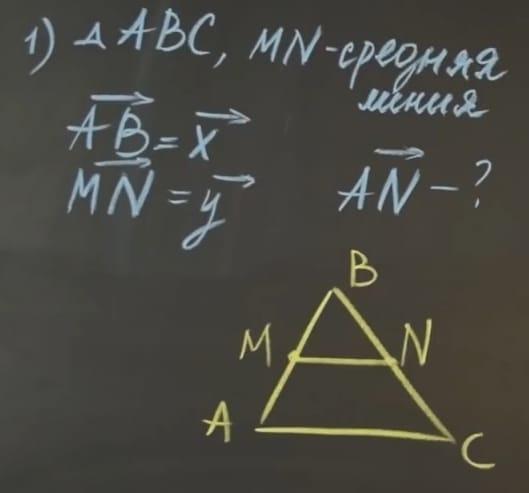 1) △ABC, MN-средняя
линия
AB = x
MN = y
AN - ?
B
M
N
A
C